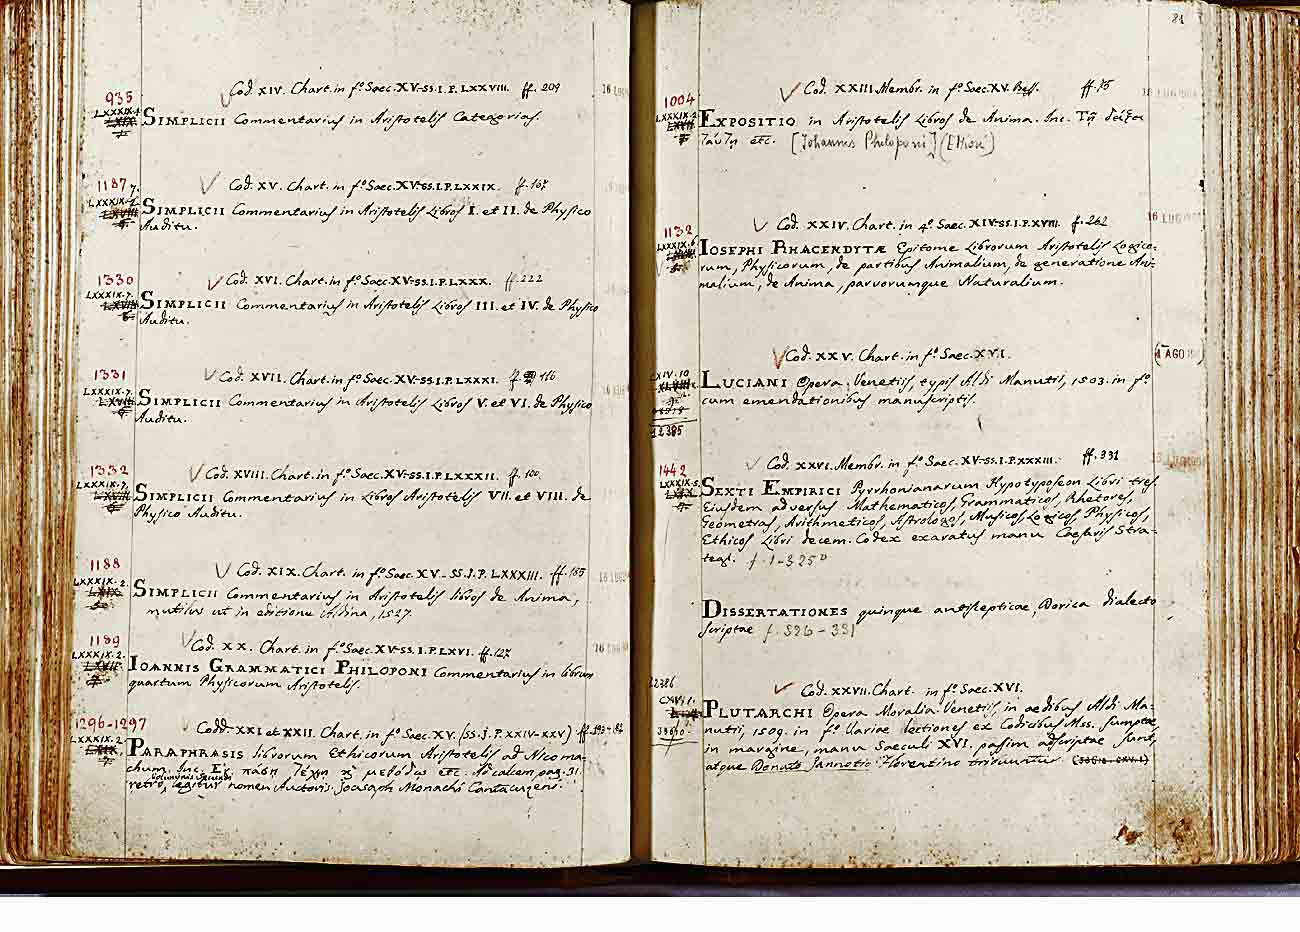 935
Cod. XIV. Chart. in fº Saec. XV-SS. I. P. LXXVIII. ff. 209
LXXXIX.
SIMPLICII Commentarius in Aristotelis Categorias.
1187
Cod. XV. Chart. in fº Saec. XV-SS. I. P. LXXIX. ff. 167
LXXXIX.
SIMPLICII Commentarius in Aristotelis Libros I. et II. de Physico
Auditu.
1330
Cod. XVI. Chart. in fº Saec. XV-SS. I. P. LXXX. ff. 222
LXXXIX. 7.
SIMPLICII Commentarius in Aristotelis Libros III. et IV. de Physico
Auditu.
1331
Cod. XVII. Chart. in fº Saec. XV-SS. I. P. LXXXI. ff. 116
LXXXIX. 7.
SIMPLICII Commentarius in Aristotelis Libros V. et VI. de Physico
Auditu.
1332
Cod. XVIII. Chart. in fº Saec. XV-SS. I. P. LXXXII. ff. 100
LXXXIX. 7.
SIMPLICII Commentarius in Libros Aristotelis VII. et VIII. de
Physico Auditu.
1188
Cod. XIX. Chart. in fº Saec. XV-SS. I. P. LXXXIII. ff. 185
LXXXIX. 2.
SIMPLICII Commentarius in Aristotelis libros de Anima,
mutilus ut in editione Aldina, 1527.
1189
Cod. XX. Chart. in fº Saec. XV-SS. I. P. LXVI. ff. 127
LXXXIX. 2.
IOANNIS GRAMMATICI PHILOPONI Commentarius in librum
quartum Physicorum Aristotelis.
1296-1297
Codd. XXI et XXII. Chart. in fº Saec. XV. (SS. I. P. XXIV-XXV) ff.
LXXXIX. 2
PARAPHRASIS librorum Ethicorum Aristotelis ad Nicoma-
chum. Inc. Εἰ πᾶσα τέχνη ϗ μεθόδῳ etc. Ad calcem pag. 31.
voluminis secundi
retro, legitur nomen Auctoris Joasaph Monachi Cantacuzeni.
81
1004
Cod. XXIII. Membr. in fº Saec. XV. Bess. ff.
LXXXIX. 2
EXPOSITIO in Aristotelis Libros de Anima. Inc. Τῇ δείξει
ταύτῃ etc. [Johannis Philoponi]
1132
Cod. XXIV. Chart. in 4º Saec. XIV-SS. I. P. XVIII. f. 262
LXXXIX. 6
IOSEPHI RHACENDYTÆ Epitome Librorum Aristotelis Logico-
rum, Physicorum, de partibus Animalium, de generatione Ani-
malium, de Anima, parvorumque Naturalium.
Cod. XXV. Chart. in fº Saec. XVI.
AGO
CXIV. 10
LUCIANI Opera. Venetiis, typis Aldi Manutii, 1503. in fº
cum emendationibus manuscriptis.
12385
1442
Cod. XXVI. Membr. in fº Saec. XV-SS. I. P. XXXIII. ff. 331
LXXXIX. 5.
SEXTI EMPIRICI Pyrrhonianarum Hypotyposeon Libri tres.
Eiusdem adversus Mathematicos, Grammaticos, Rhetores,
Geometras, Arithmeticos, Astrologos, Musicos, Logicos, Physicos,
Ethicos Libri decem. Codex exaratus manu Caesaris Stra-
tegi. f. 1-325
DISSERTATIONES quinque antiscepticae, Dorica dialecto
scriptae f. 326-331
12386
Cod. XXVII. Chart. in fº Saec. XVI.
PLUTARCHI Opera Moralia. Venetiis, in aedibus Aldi Ma-
nutii, 1509. in fº Variae lectiones ex Codicibus Mss. sumptae
in margine, manu Saeculi XVI. passim adscriptae sunt,
atque Donato Jannotio Florentino tribuuntur